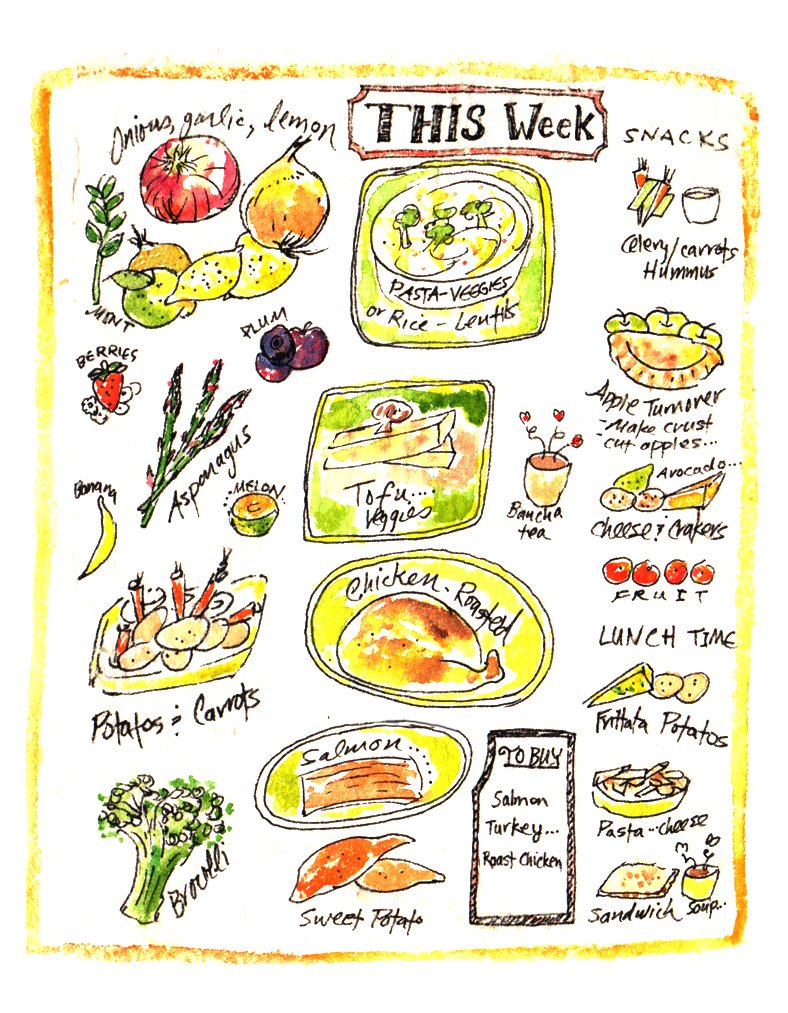 THIS Week
Onions, garlic, lemon
MINT
BERRIES
PLUM
Asparagus
Banana
MELON
Potatos & Carrots
Brocolli
PASTA-VEGGIES
or Rice - Lentils
Tofu....
Veggies
Bancha
tea
Chicken-Roasted
Salmon...
Sweet Potato
TO BUY
Salmon
Turkey...
Roast Chicken
SNACKS
Celery/carrots
Hummus
Apple Turnover
-Make crust
cut apples...
Avocado...
Cheese & Crakers
FRUIT
LUNCH TIME
Frittata Potatos
Pasta...cheese
Sandwich
Soup...